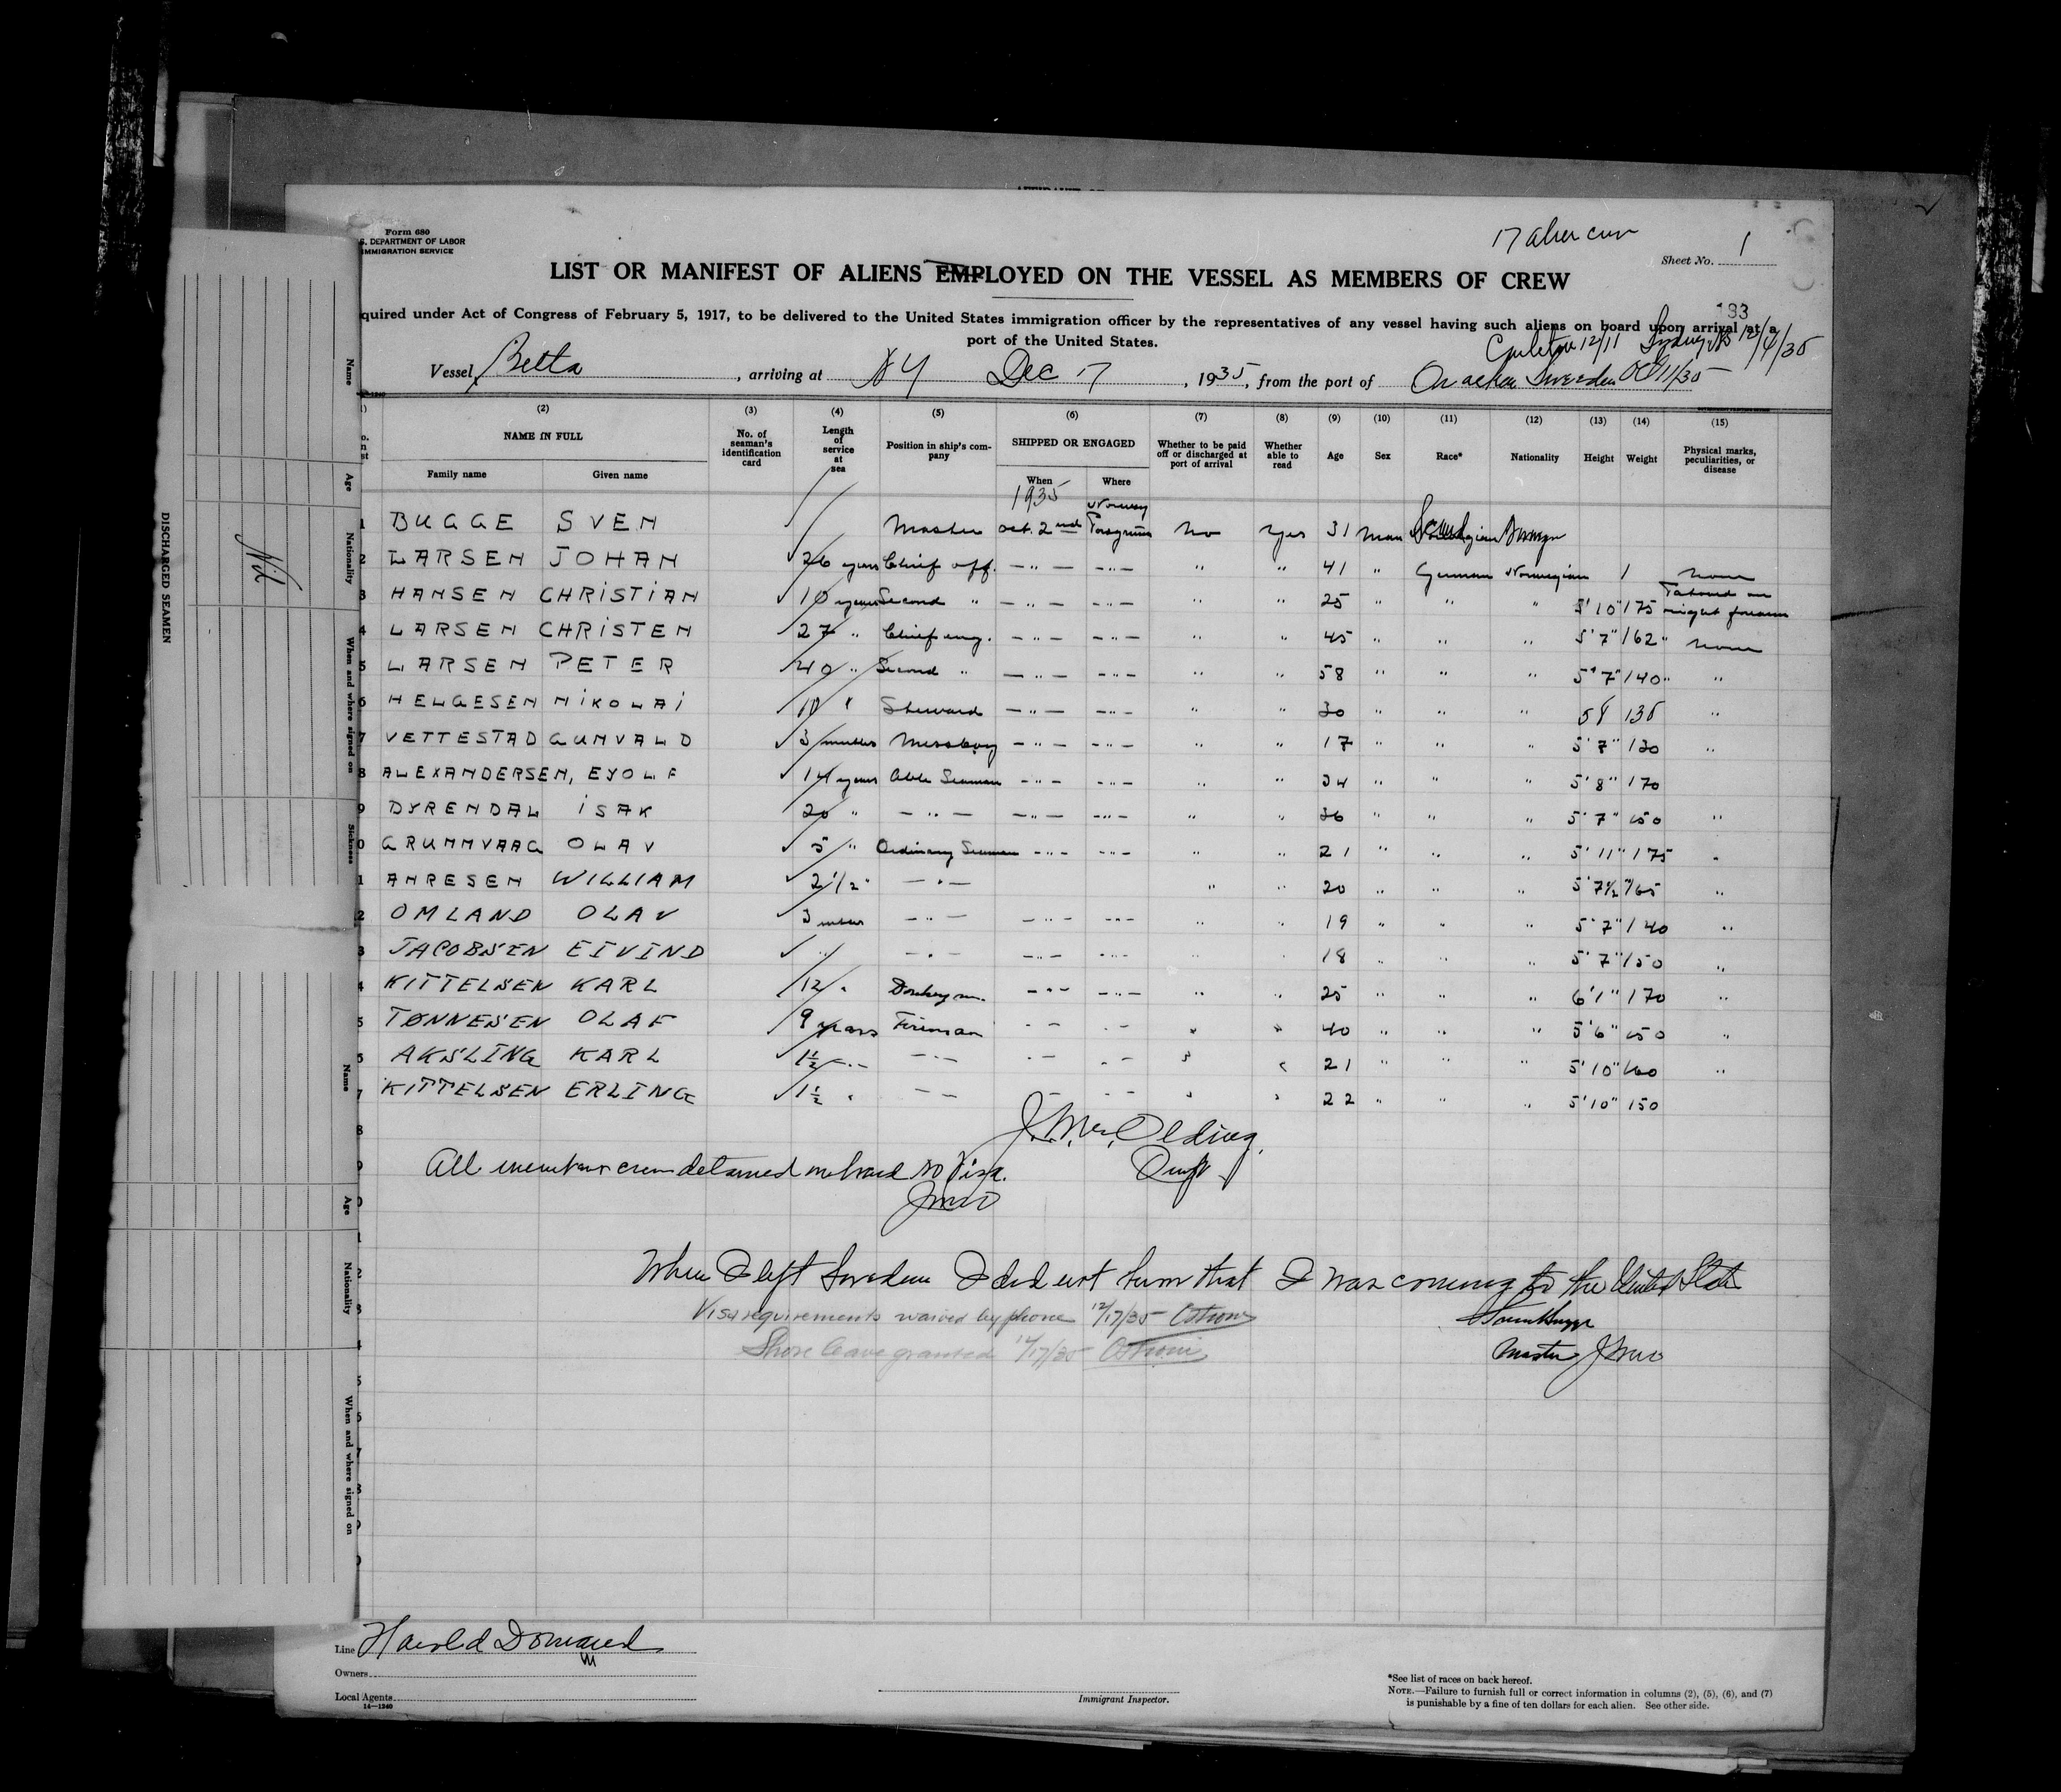 Form 680
S. DEPARTMENT OF LABOR
IMMIGRATION SERVICE
17 alien crew
Sheet No. 1
LIST OR MANIFEST OF ALIENS EMPLOYED ON THE VESSEL AS MEMBERS OF CREW
183
quired under Act of Congress of February 5, 1917, to be delivered to the United States immigration officer by the representatives of any vessel having such aliens on board upon arrival at a
port of the United States.
12/11 Sydney NS 12/4/35
Vessel Betta, arriving at NY Dec 7, 1935, from the port of Sweden Oct 11/35
(2) (3) (4) (5) (6) (7) (8) (9) (10) (11) (12) (13) (14) (15)
NAME IN FULL No. of seaman's identification card Length of service at sea Position in ship's company SHIPPED OR ENGAGED Whether to be paid off or discharged at port of arrival Whether able to read Age Sex Race* Nationality Height Weight Physical marks, peculiarities, or disease
Family name Given name When Where
1935 Norway
1 BUGGE SVEN Master oct. 2nd Porsgrunn No Yes 31 Man
2 LARSEN JOHAN 26 years Chief off. — " — — " — " " 41 " German Norwegian 1 none
3 HANSEN CHRISTIAN 10 years Second " — " — — " — " " 25 " " " 5' 10" 175 Tatooed on right forearm
4 LARSEN CHRISTEN 27 " Chief eng. — " — — " — " " 45 " " " 5' 7" 162 " none
5 LARSEN PETER 40 " Second " — " — — " — " " 58 " " " 5' 7" 140 " "
6 HELGESEN NIKOLAI 10 " Steward — " — — " — " " 30 " " " 5 8 135 "
7 VETTESTAD GUNVALD 3 months Messboy — " — — " — " " 17 " " " 5' 7" 130 "
8 ALEXANDERSEN, EYOLF 14 years Able Seaman — " — — " — " " 34 " " " 5' 8" 170
9 DYRENDAL ISAK 20 " — " — — " — — " — " " 36 " " " 5' 7" 150 "
0 GRUMMVAAG OLAV 5 " Ordinary Seaman — " — — " — " " 21 " " " 5' 11" 175 "
1 ANRESEN WILLIAM 2 1/2 " — " — " " 20 " " " 5' 7½" 165 "
2 OMLAND OLAV 3 — " — — " — — " — " " 19 " " " 5' 7" 140 "
3 JACOBSEN EIVIND " — " — — " — — " — " " 18 " " " 5' 7" 150 "
4 KITTELSEN KARL 12 " — " — — " — " " 25 " " " 6' 1" 170 "
5 TØNNESEN OLAF 9 years Fireman " — " — " " 40 " " " 5' 6" 150 "
6 AKSLING KARL 1½ " — " — " — " — " " 21 " " " 5' 10" 160 "
7 KITTELSEN ERLING 1½ " — — — " — " " 22 " " " 5' 10" 150
8 J. Mc. Olding.
All members crew detained on board no Visa.
JMcO
When I left Sweden I did not know that I was coming to the United States
Visa requirements waived by phone 12/17/35
Sven Bugge
Shore leave granted 12/17/35
Master JMcO
Line
Owners
Local Agents
14—1240
Immigrant Inspector.
*See list of races on back hereof.
NOTE.—Failure to furnish full or correct information in columns (2), (5), (6), and (7)
is punishable by a fine of ten dollars for each alien. See other side.
DISCHARGED SEAMEN
Nil
Name
Age
Nationality
When and where signed on
Sickness
Name
Age
Nationality
When and where signed on